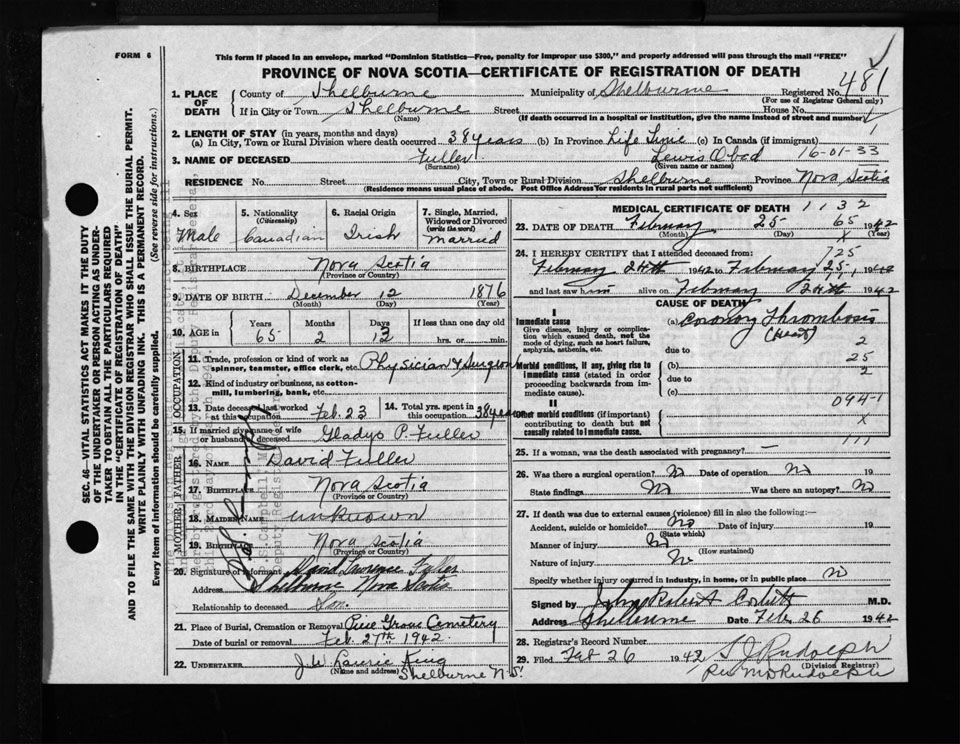 FORM 6
This form if placed in an envelope, marked "Dominion Statistics—Free, penalty for improper use $300," and properly addressed will pass through the mail "FREE"
PROVINCE OF NOVA SCOTIA—CERTIFICATE OF REGISTRATION OF DEATH
481
1. PLACE OF DEATH
County of Shelburne Municipality of Shelburne Registered No.
(For use of Registrar General only)
If in City or Town Shelburne Street House No.
(Name) (If death occurred in a hospital or institution, give the name instead of street and number)
2. LENGTH OF STAY (in years, months and days)
(a) In City, Town or Rural Division where death occurred 38 years (b) In Province Life Time (c) In Canada (if immigrant)
3. NAME OF DECEASED Fuller Lewis Obed 16-01-33
(Surname) (Given name or names)
RESIDENCE No. Street City, Town or Rural Division Shelburne Province Nova Scotia
(Residence means usual place of abode. Post Office Address for residents in rural parts not sufficient)
SEC. 46—VITAL STATISTICS ACT MAKES IT THE DUTY
OF THE UNDERTAKER OR PERSON ACTING AS UNDER-
TAKER TO OBTAIN ALL THE PARTICULARS REQUIRED
IN THE "CERTIFICATE OF REGISTRATION OF DEATH"
AND TO FILE THE SAME WITH THE DIVISION REGISTRAR WHO SHALL ISSUE THE BURIAL PERMIT.
WRITE PLAINLY WITH UNFADING INK. THIS IS A PERMANENT RECORD.
Every item of information should be carefully supplied. (See reverse side for instructions.)
4. Sex 5. Nationality (Citizenship) 6. Racial Origin 7. Single, Married, Widowed or Divorced (write the word)
Male Canadian Irish Married
8. BIRTHPLACE Nova Scotia
(Province or Country)
9. DATE OF BIRTH December 12 1876
(Month) (Day) (Year)
10. AGE in Years Months Days If less than one day old
65 2 13 hrs. or min.
OCCUPATION
11. Trade, profession or kind of work as spinner, teamster, office clerk, etc. Physician & Surgeon
12. Kind of industry or business, as cotton-mill, lumbering, bank, etc.
13. Date deceased last worked at this occupation Feb. 23 14. Total yrs. spent in this occupation 38 years
15. If married give name of wife or husband of deceased Gladys P. Fuller
FATHER
16. NAME David Fuller
17. BIRTHPLACE Nova Scotia
(Province or Country)
MOTHER
18. MAIDEN NAME unknown
19. BIRTHPLACE Nova Scotia
(Province or Country)
20. Signature of Informant Lawrence
Address Shelburne Nova Scotia
Relationship to deceased Son.
21. Place of Burial, Cremation or Removal Pine Grove Cemetery
Date of burial or removal Feb. 27th 1942.
22. UNDERTAKER J.W. Laurie King
(Name and address) Shelburne N.S.
MEDICAL CERTIFICATE OF DEATH 1132
23. DATE OF DEATH February 25 65 1942
(Month) (Day) (Year)
24. I HEREBY CERTIFY that I attended deceased from:
February 24th 1942 to February 25, 1942
and last saw him alive on February 24th 1942
CAUSE OF DEATH
I
Immediate cause
Give disease, injury or complication which caused death, not the mode of dying, such as heart failure, asphyxia, asthenia, etc.
(a) Coronary Thrombosis
(Heart)
due to 2
Morbid conditions, if any, giving rise to immediate cause (stated in order proceeding backwards from immediate cause).
(b) 25
due to 2
(c)
094-1
II
Other morbid conditions (if important) contributing to death but not causally related to immediate cause.
X
111
25. If a woman, was the death associated with pregnancy? —
26. Was there a surgical operation? No Date of operation No 19
State findings No Was there an autopsy? No
27. If death was due to external causes (violence) fill in also the following:—
Accident, suicide or homicide? No Date of injury 19
(State which)
Manner of injury No
(How sustained)
Nature of injury No
Specify whether injury occurred in industry, in home, or in public place No
Signed by John Robert Corbett M.D.
Address Shelburne Date Feb 26 1942
28. Registrar's Record Number
29. Filed Feb 26 1942 S J Rudolph
(Division Registrar)
Per M D Rudolph